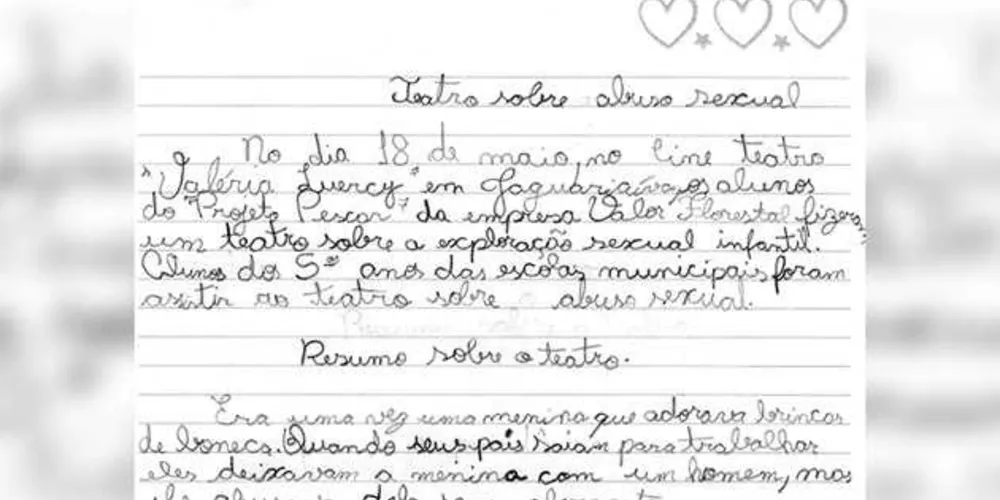 Teatro sobre abuso sexual
No dia 18 de maio, no Cine teatro
"Valéria Luercy" em Jaguariaíva, os alunos
do "Projeto Pescar" da empresa Valor Florestal fizeram
um teatro sobre a exploração sexual infantil.
Alunos dos 5º anos das escolas municipais foram
assistir ao teatro sobre abuso sexual.
Resumo sobre o teatro.
Era uma vez uma menina que adorava brincar
de boneca. Quando seus pais saiam para trabalhar
eles deixavam a menina com um homem, mas